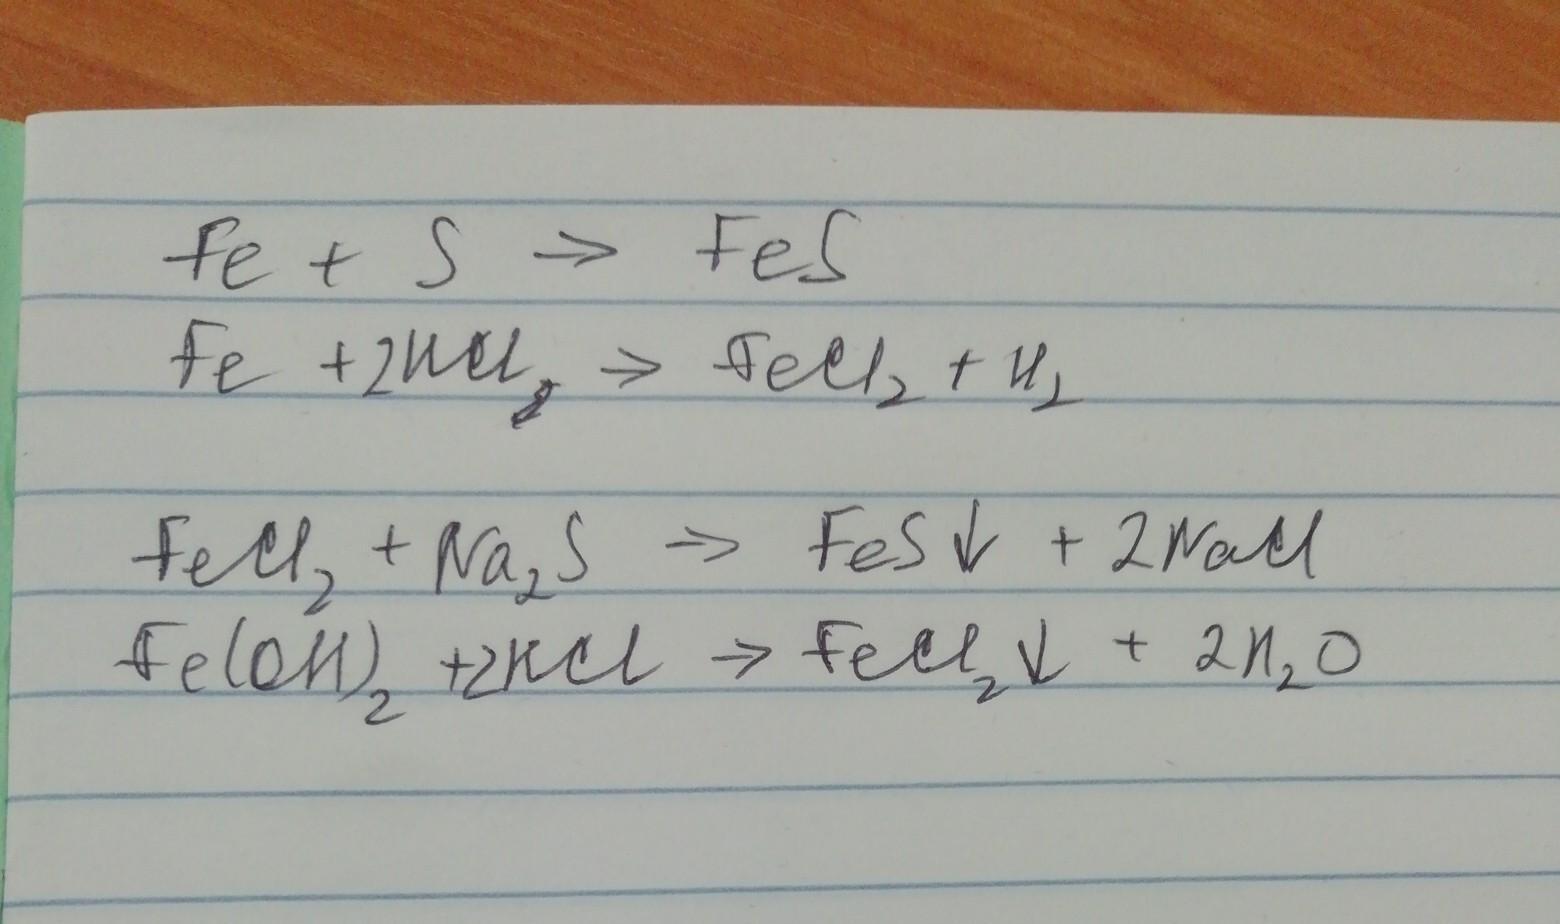 Fe + S → FeS
Fe + 2HCl → FeCl₂ + H₂
FeCl₂ + Na₂S → FeS↓ + 2NaCl
Fe(OH)₂ + 2HCl → FeCl₂↓ + 2H₂O